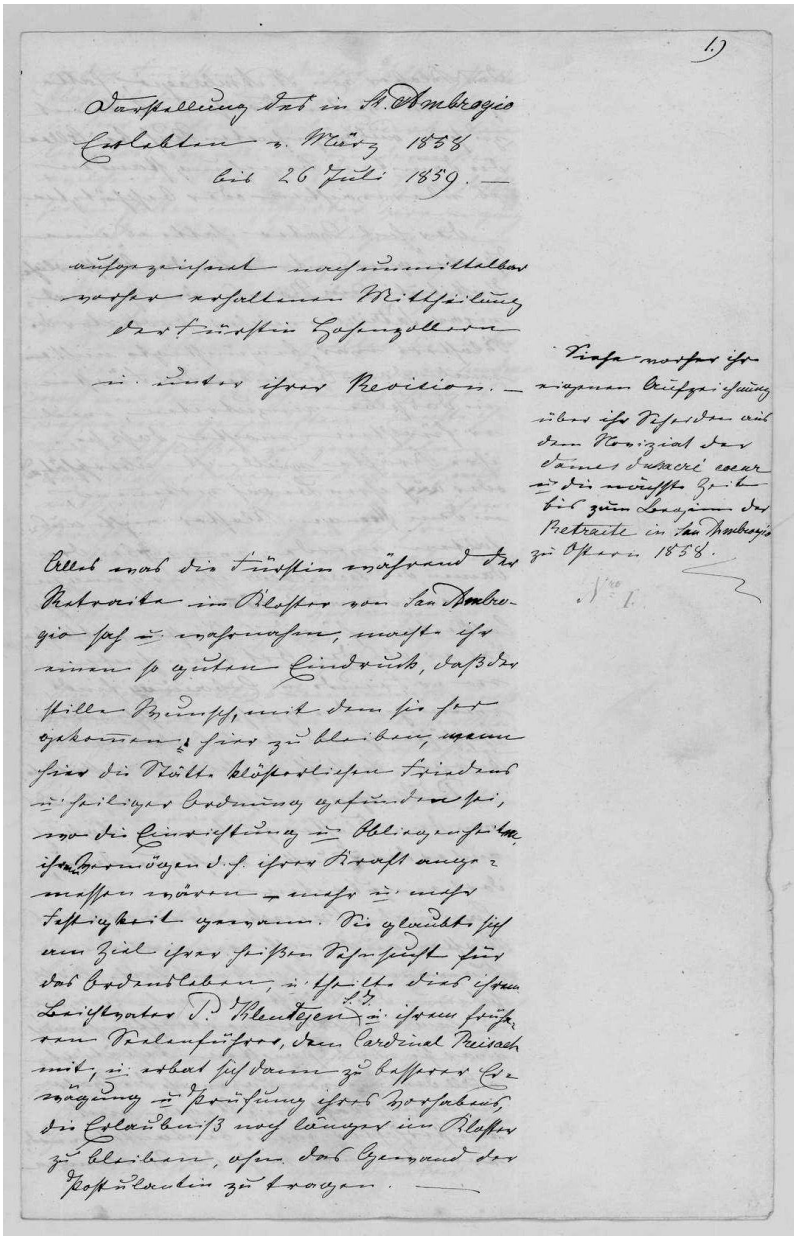 1.)
Darstellung des in St. Ambrogio
Erlebten v. März 1858
bis 26 Juli 1859. —
aufgezeichnet nach unmittelbar
vorher erhaltenen Mittheilung
der Fürstin Hohenzollern
u. unter ihrer Revition. —
Siehe vorher ihr
eigenen Aufzeichnung
über ihr Scheiden aus
dem Noviziat der
dames du sacré coeur
u. die nächste Zeit
bis zum Beginn der
Retraite in San Ambrogio
zu Ostern 1858.
Nro 1.
Alles was die Fürstin während der
Retraite im Kloster von San Ambro-
gio sah u. wahrnahm, machte ihr
einen so guten Eindruck, daß der
stille Wunsch, mit dem sie her
gekommen, hier zu bleiben, wenn
hier die Stätte klösterlichen Friedens
u. heiliger Ordnung gefunden sei,
wo die Einrichtung u. Obliegenheiten
ihrem Vermögen d. h. ihrer Kraft ange-
messen wären – mehr u. mehr
Festigkeit gewann. Sie glaubte sich
am Ziel ihrer heißen Sehnsucht für
das Ordensleben, u. theilte dies ihrem
Beichtvater P. Kleutgen S. J. u. ihrem frühe-
ren Seelenführer, dem Cardinal Reisach
mit, u. erbat sich dann zu besserer Er-
wägung u. Prüfung ihres Vorhabens,
die Erlaubniß noch länger im Kloster
zu bleiben, ohne das Gewand der
Postulantin zu tragen. —